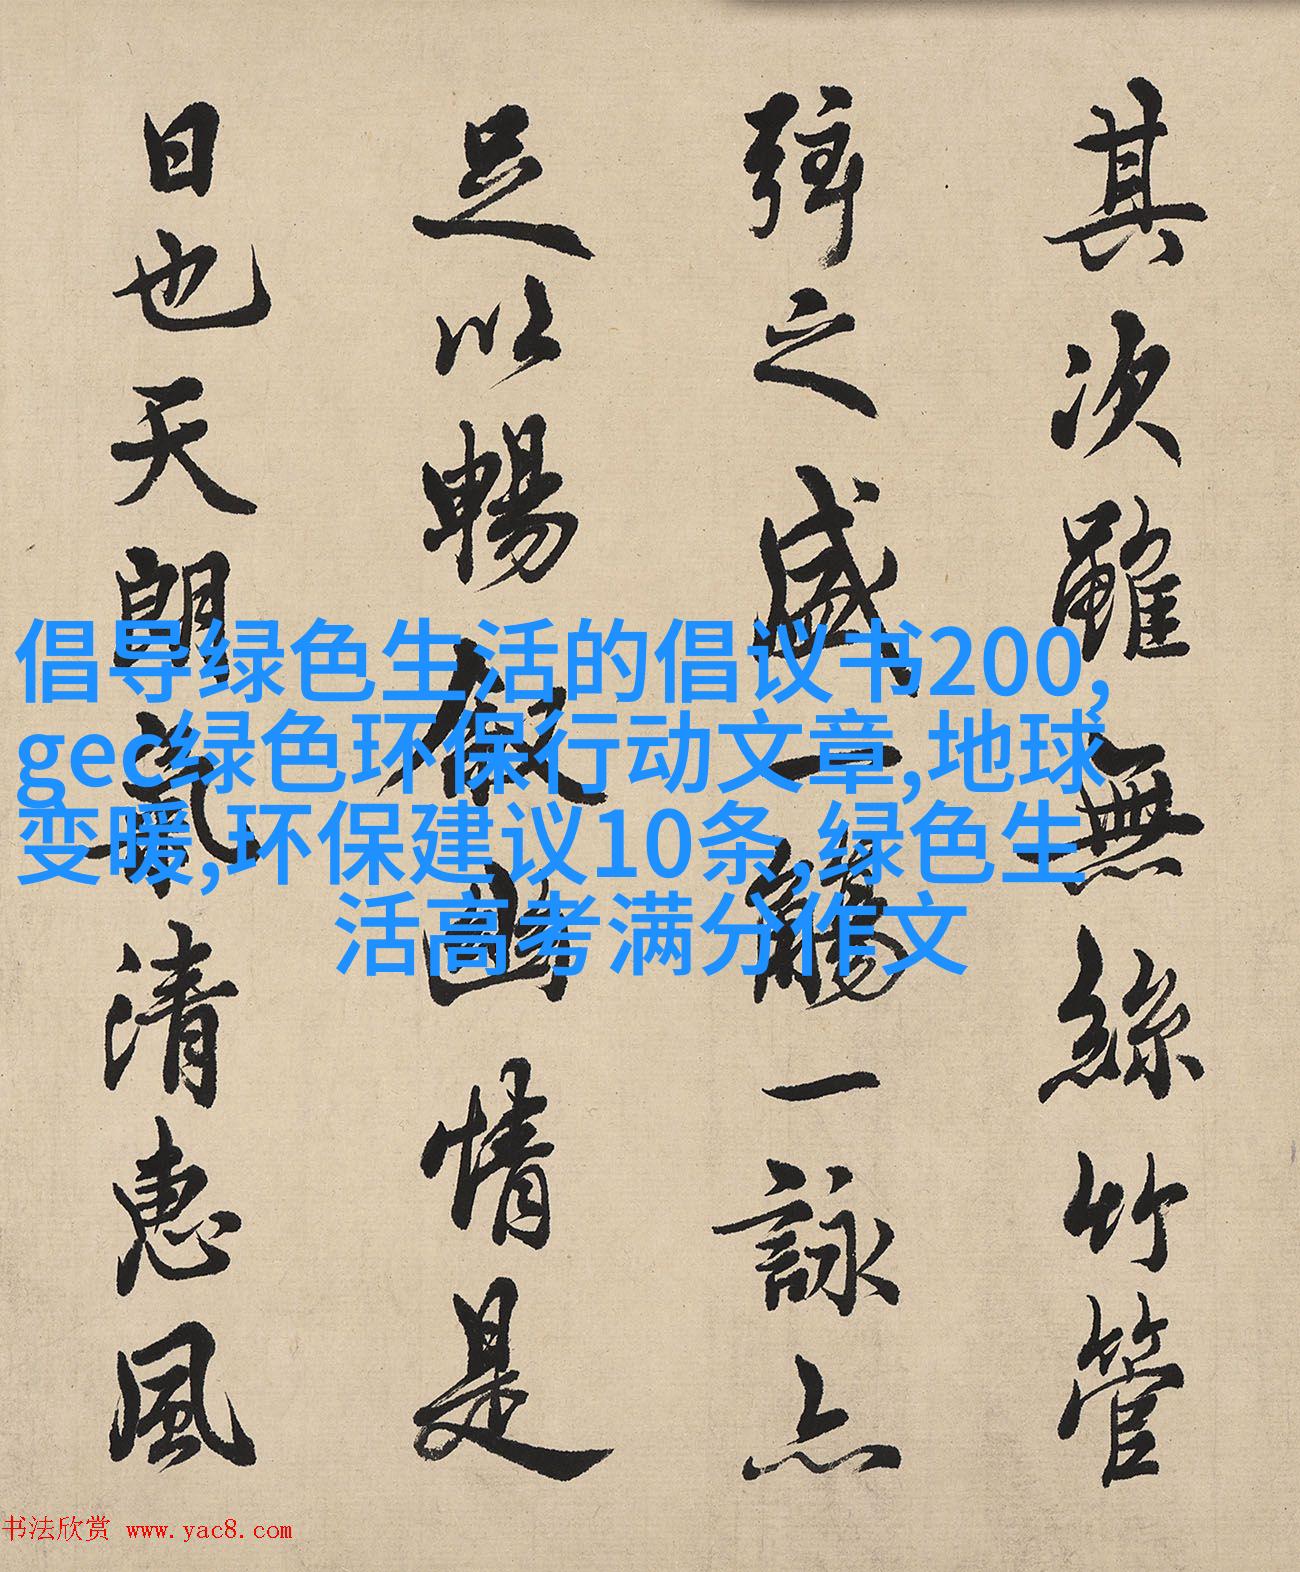 其次雖無絲竹管
弦之盛一觴一詠亦
足以暢敘幽情是
日也天朗氣清惠風
倡导绿色生活的倡议书200,
gec绿色环保行动文章,地球
变暖,环保建议10条,绿色生
活高考满分作文
书法欣赏 www.yac8.com